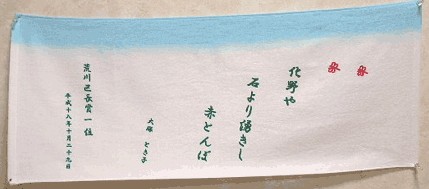 祭
祭
化野や
石より湧きし
赤とんぼ
大塚 とき子
荒川区長賞一位
平成十八年十月二十九日